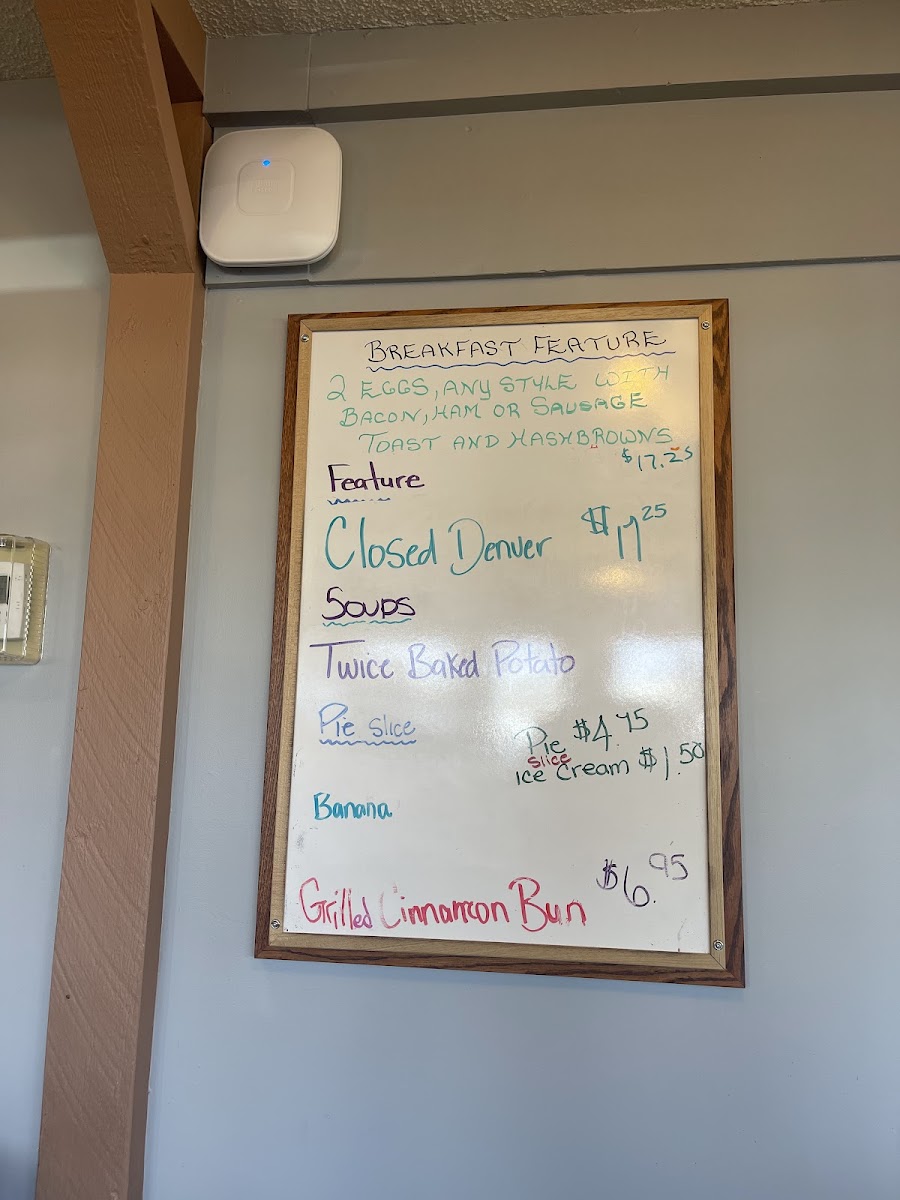 BREAKFAST FEATURE
2 EGGS, ANY STYLE WITH
BACON, HAM OR SAUSAGE
TOAST AND HASHBROWNS
$17.25
Feature
Closed Denver $17 25
Soups
Twice Baked Potato
Pie slice
Pie $4.75
slice
ice cream $1.50
Banana
Grilled Cinnamon Bun $6.95